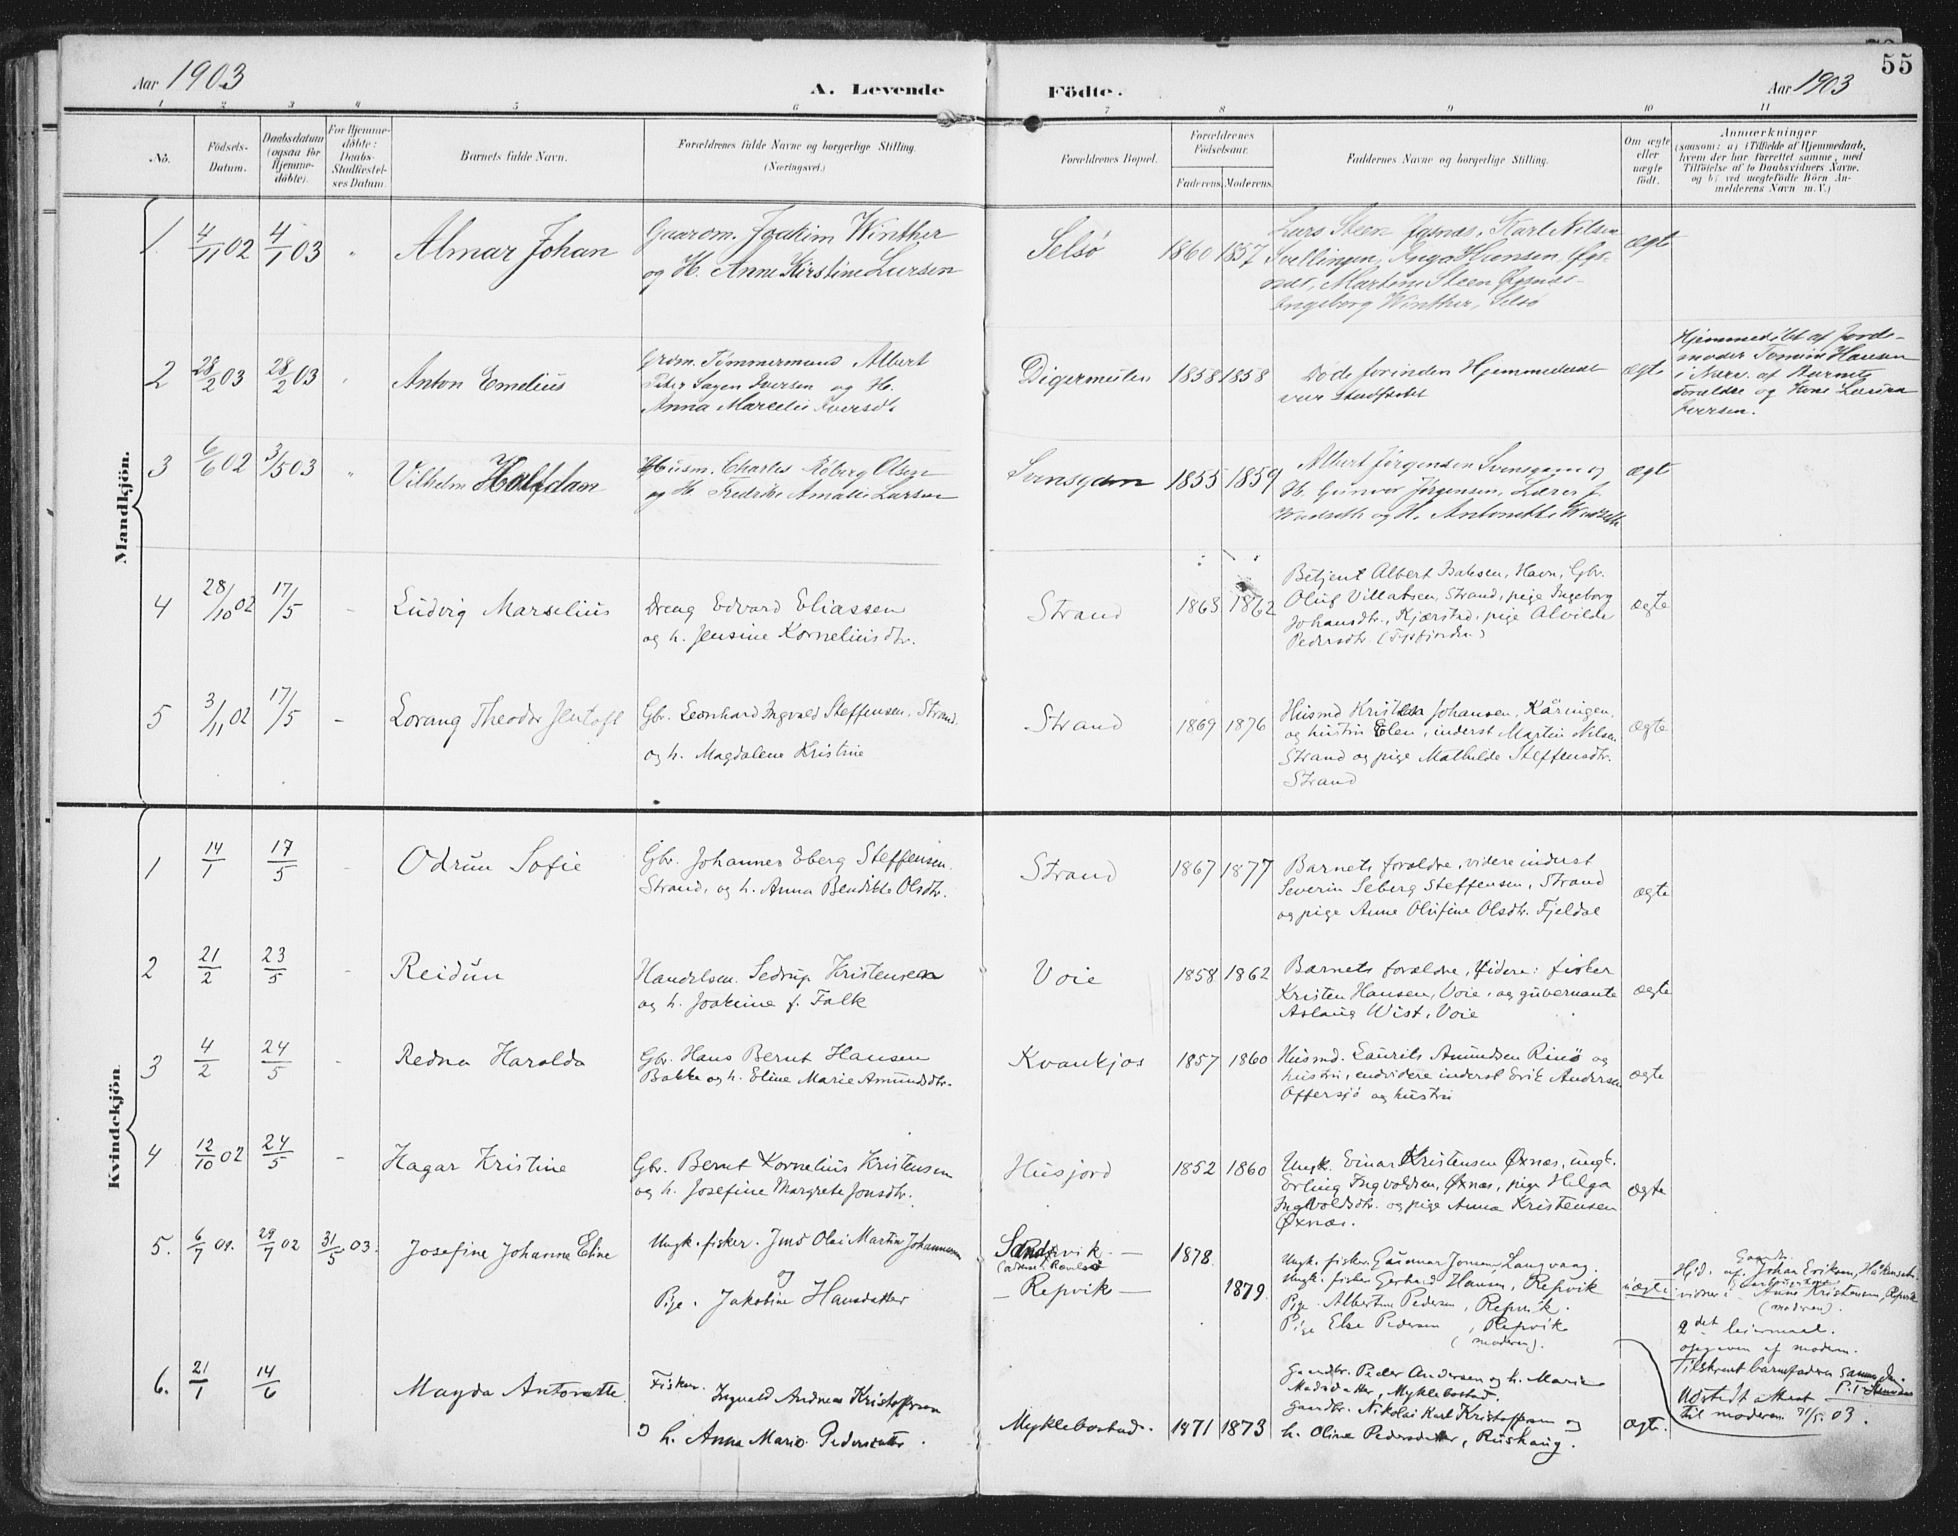 55
Aar 1903
A. Levende
Födte.
Aar 1903
1 2 3 4 5 6 7 8 9 10 11
No.
Födsels-
Datum.
Daabsdatum
(ogsaa for
Hjemme-
döbte).
For Hjemme-
döbte:
Daabs-
Stadfæstel-
ses Datum.
Barnets fulde Navn.
Forældrenes fulde Navne og borgerlige Stilling.
(Næringsvei.)
Forældrenes Bopæl.
Forældrenes
Födselsaar.
Faderens. Moderens.
Faddernes Navne og borgerlige Stilling.
Om ægte
eller
uægte
födt.
Anmærkninger
(saasom: a) i Tilfælde af Hjemmedaab,
hvem der har forrettet samme, med
Tilföielse af to Daabsvidners Navne.
og b) ved uægtefödte Börn An-
melderens Navn m. V.)
Mandkjön.
1 4/11 02 4/1 03 " Almar Johan
Gaardm. Joakim Winther
og H. Anne Kirstine Larsen
Selsø 1860 1857
Lars Steen Øgsnæs, Karl Nilsen
Svellingen, Inga Hansen Øgs-
næs, Martine Steen Øgsnæs
Ingeborg Winther, Selsø
ægte
2 28/2 03 28/2 03 " Anton Emelius
Grdm. Tømmermand Albert
Peder Iversen og H.
Anna Marcelie Iversdt.
Digermulen 1858 1858
Døde forinden Hjemmedaab
var stadfæstet
ægte
Hjemmedøbt af Jorde-
moder Hansen
i Nærv. af Barnets
Forældre og Kone Lavina
Iversen.
3 6/6 02 3/5 03 " Vilhelm Halfdan
Husm. Charles Røberg Olsen
og H. Fredrikke Amalie Larsen
Svinsgam 1855 1859
Albert Jørgensen Svinsgam og
H. Gunvor Jørgensen, Lærer J.
Wadseth og H. Antonette Wadseth
ægte
4 28/10 02 17/5 - Ludvig Marselius
Dreng Edvard Eliassen
og h. Jensine Korneliusdtr.
Strand 1863 1862
Betjent Albert Isaksen, Havn, Gbr.
Oluf Villatsen, Strand, pige Ingeborg
Johansdtr., Kjærstad, pige Alvilde
Pedersdtr.
ægte
5 3/11 02 17/5 - Lorang Theodor Jentoft
Gbr. Leonhard Ingvald Steffensen, Strand
og h. Magdalene Kristine
Strand 1869 1876
Husmd Kristen Johansen, Kåringen,
og hustru Elen, inderst Martin Nilsen
Strand og pige Mathilde Steffensdtr.
Strand
ægte
Kvindekjön.
1 14/1 17/5 - Odrun Sofie
Gbr. Johannes Eberg Steffensen
Strand, og h. Anna Bendikte Olsdtr.
Strand 1867 1877
Barnets forældre, videre inderst
Severin Seberg Steffensen, Strand
og pige Anne Olufine Olsdtr. Fjeldal
ægte
2 21/2 23/5 - Reidun
Handelsm. Sedrup Kristensen
og h. Joakime f. Falk
Voie 1858 1862
Barnets forældre, videre: fisker
Kristen Hansen, Voie, og guvernante
Aslaug Wist, Voie
ægte
3 4/2 24/5 - Redna Haralda
Gbr. Hans Bernt Hansen
Bakke og h. Eline Marie Amundsdtr.
Kvankjos 1857 1860
Husmd. Laurits Amundsen Rinø og
hustru, endvidere inderst Erik Andersen
Offersjø og hustru
ægte
4 12/10 02 24/5 - Hagar Kristine
Gbr. Bernt Kornelius Kristensen
og h. Josefine Margrete Jonsdtr.
Husjord 1852 1860
Ungk. Einar Kristensen Øxnæs, ungk.
Erling Ingvoldsen, Øxnæs, pige Helga
Ingvoldsdtr. og pige Anna Kristensen
Øxnæs.
ægte
5. 6/7 02. 29/7 02 31/5 03. Josefine Johanna Eline
Ungk. fisker. Jens Olai Martin Johannesen
og
Pige. Jakobine Hansdatter
Sandvik -
- Repvik -
1878.
1879.
Ungk. fisker Gunnar Jensen Langvaag.
Ungk. fisker Gerhard Hansen, Repvik
Pige. Albertine Pedersen, Repvik.
Pige Else Pedersen, Repvik
(moderen).
uægte
Gaardbr.
Hjd. af Johan Eriksen,
vidner: Anne Kristensen, Repvik
(moderen).
2det leiermaal.
opgiven af modern.
Tilskrevet barnefaderen samme dag.
Udstedt attest
til moderen 31/5 03.
6. 21/1 14/6 Magda Antonette
Fisker. Ingvald Andreas Kristoffersen
og h. Anna Marie Pedersdatter.
Myklebostad. 1871 1873
Gaardbr. Peder Andersen og h. Marie
Madsdatter, Myklebostad.
Gaardbr. Nikolai Karl Kristoffersen og
h. Oline Pedersdatter, Rushaug.
ægte.